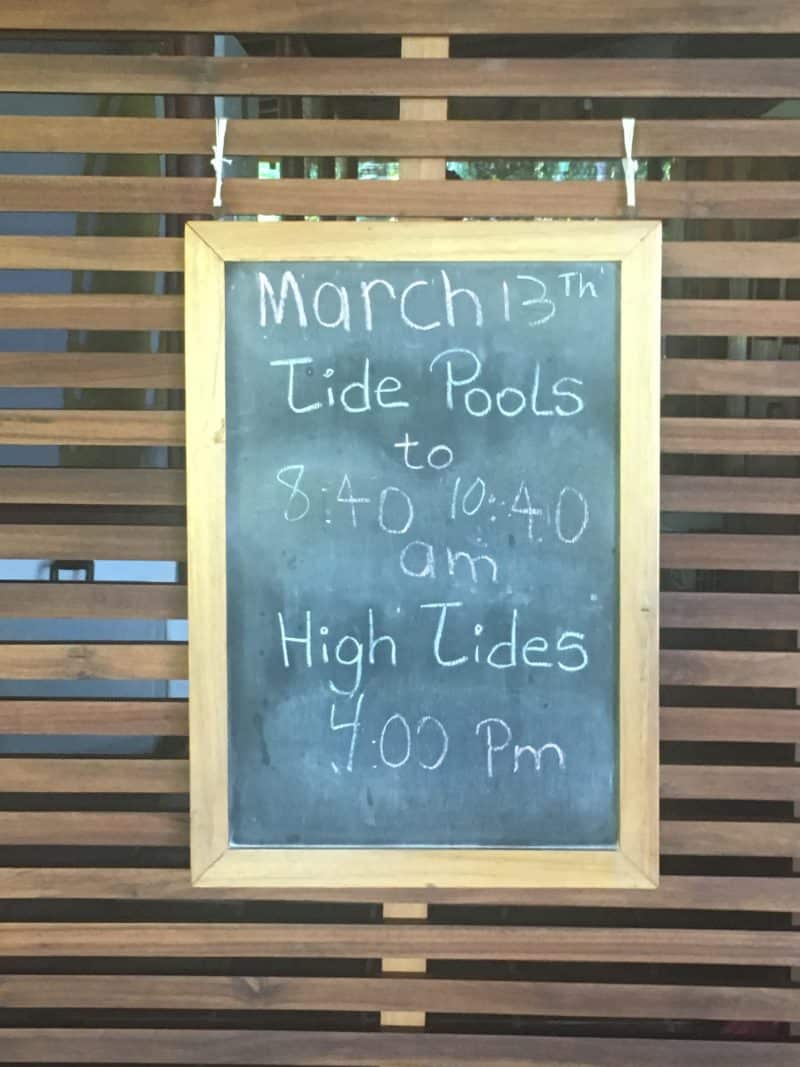 March 13Th
Tide Pools
to
8:40 10:40
am
High Tides
4:00 Pm